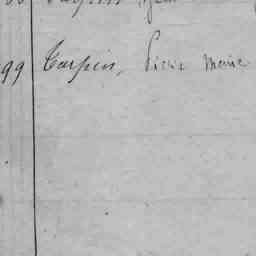 99 Tarpin, Pierre Marie